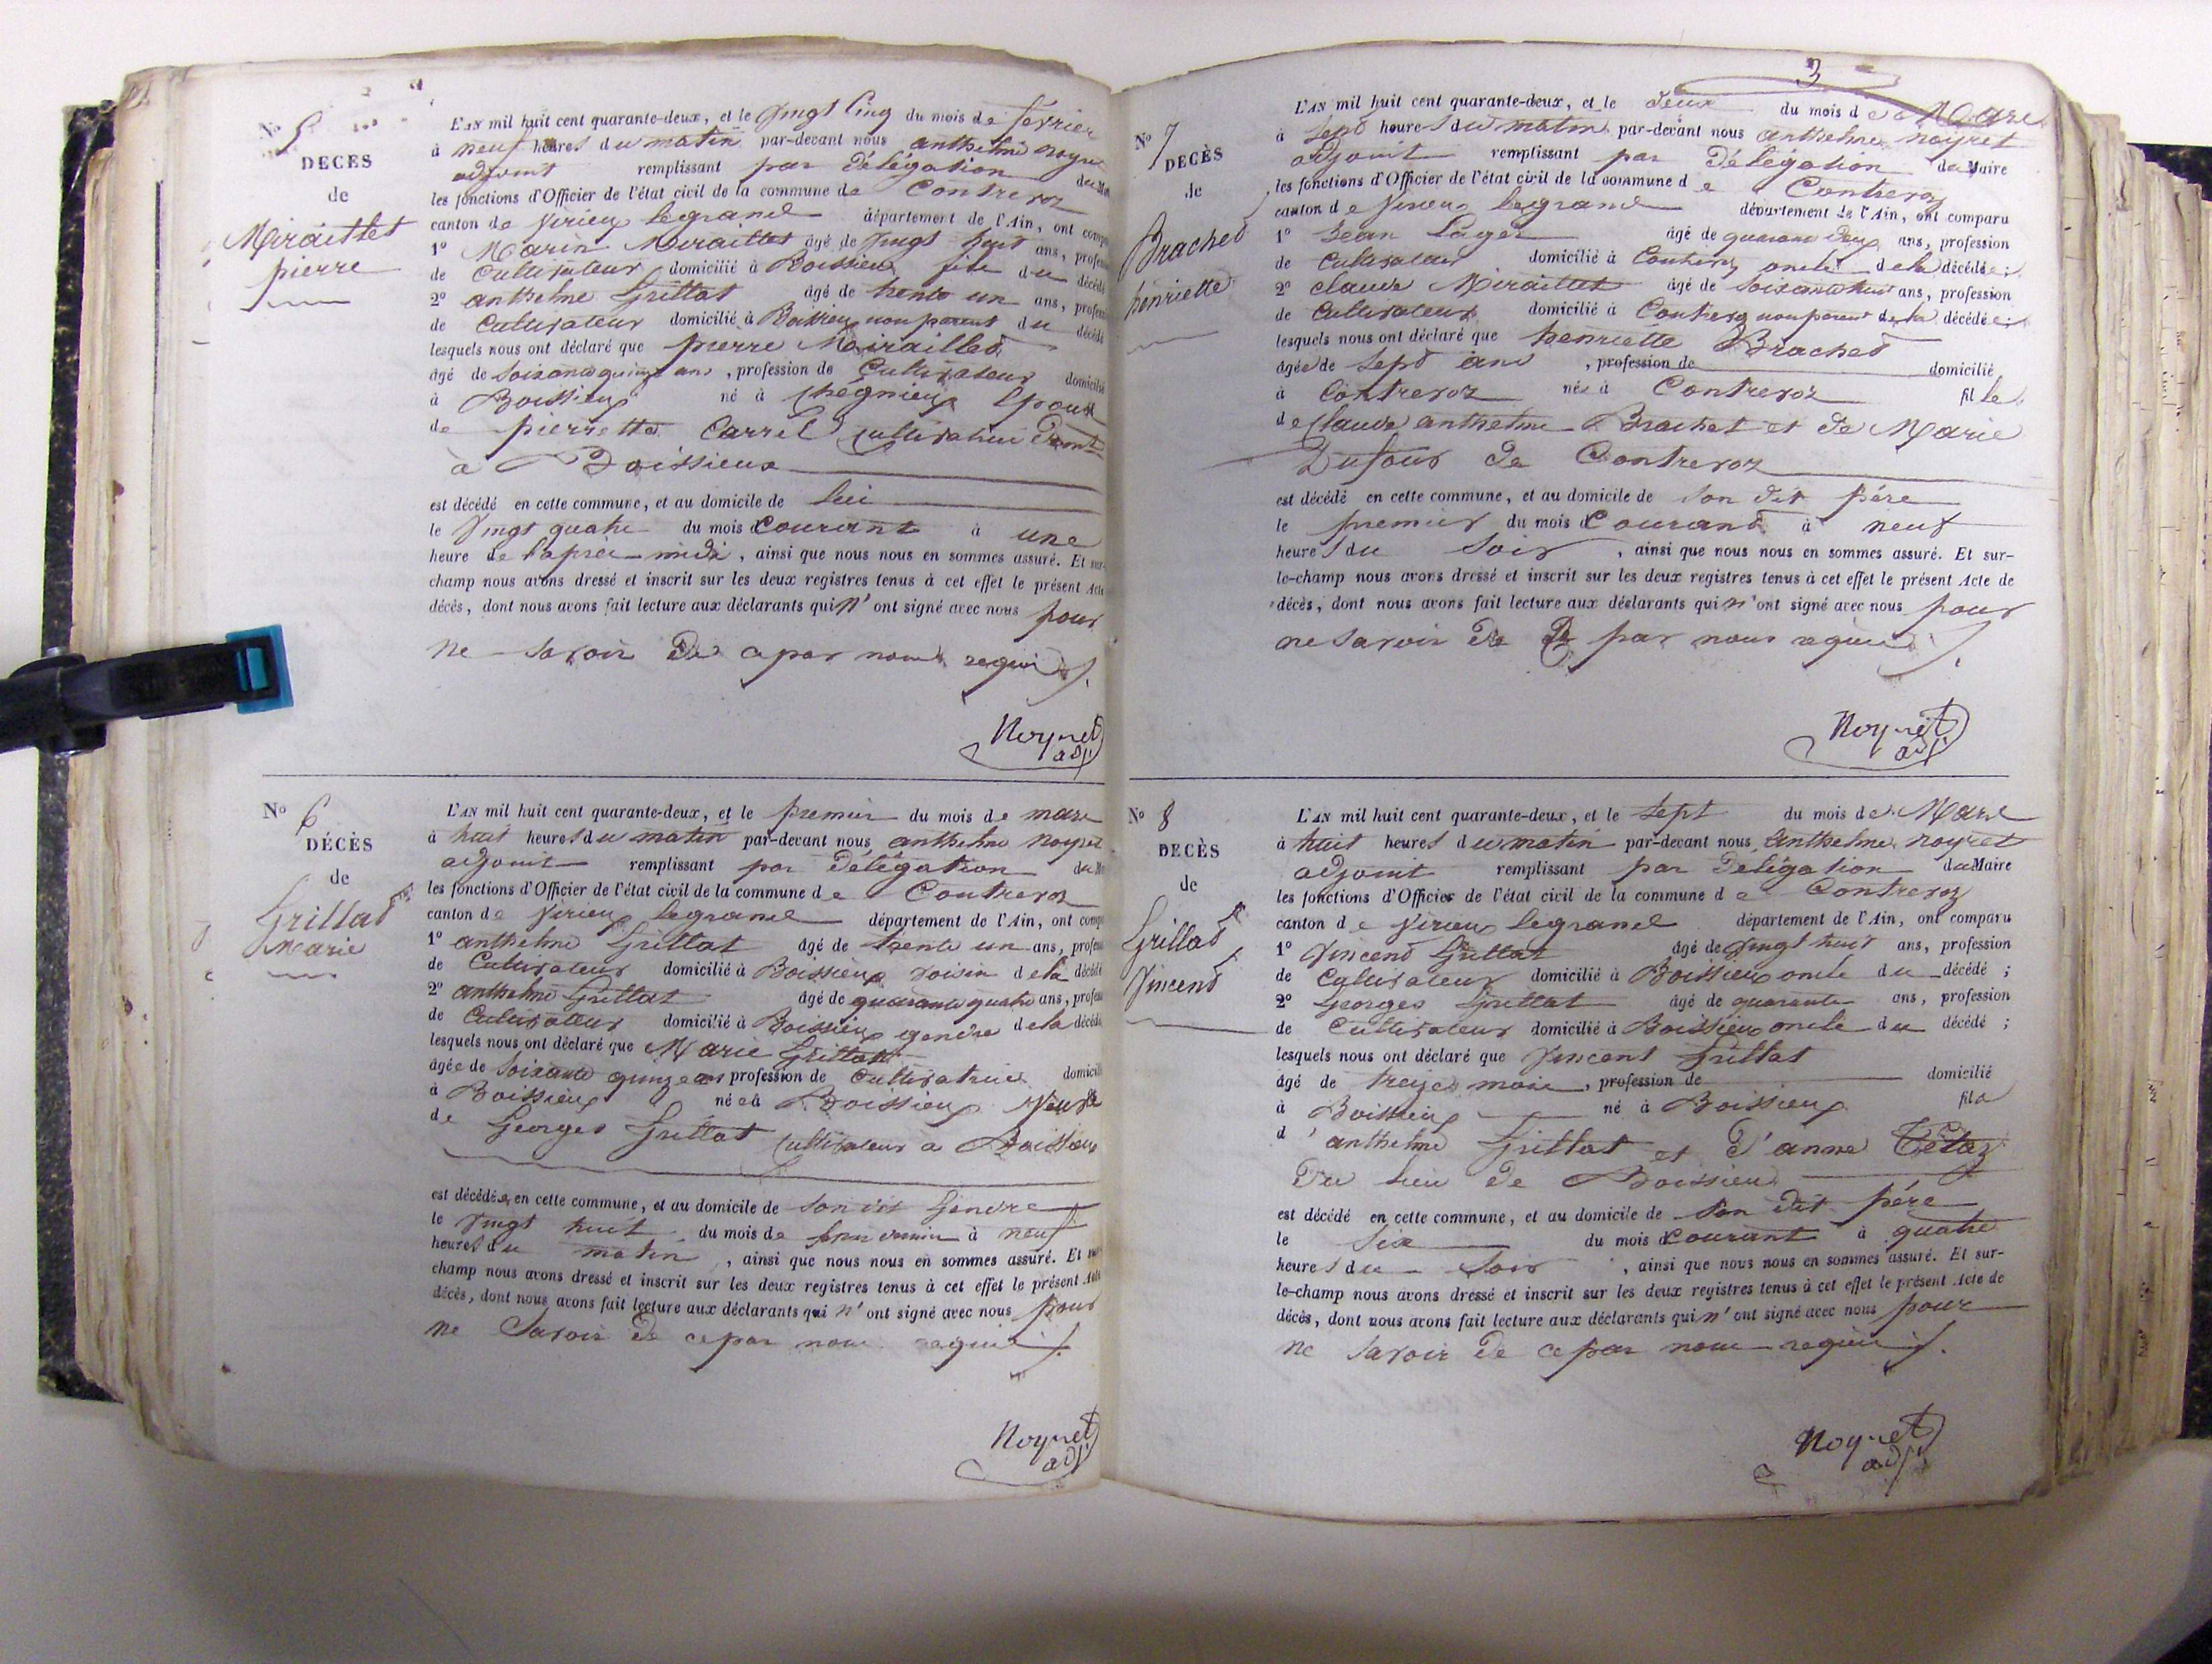 N° 5
DÉCÈS
de
Miraillet
pierre
L'AN mil huit cent quarante-deux, et le vingt cinq du mois de fevrier
à neuf heures du matin par-devant nous anthelme noyre
adjoint remplissant par délégation du
les fonctions d'Officier de l'état civil de la commune de Contrevoz
canton de virieu legrand département de l'Ain, ont comp
1° Marin Miraillet âgé de vingt huit ans, profess
de Cultivateur domicilié à Boissieu fils du décédé
2° anthelme Grillat âgé de trente un ans, profess
de Cultivateur domicilié à Boissieu non parent du décédé
lesquels nous ont déclaré que pierre Miraillet
âgé de soixante quinze ans, profession de Cultivateur domicilié
à Boissieu né à Chegnieu Epoux
de pierrette Carrel cultivatrice
à Boissieux
est décédé en cette commune, et au domicile de lui
le vingt quatre du mois courant à une
heure de l'apres midi, ainsi que nous nous en sommes assuré. Et sur-
champ nous avons dressé et inscrit sur les deux registres tenus à cet effet le présent Acte
décès, dont nous avons fait lecture aux déclarants qui n'ont signé avec nous pour
ne savoir de ce par nous requis
Noyret
adj
N° 6
DÉCÈS
de
Grillat
Marie
L'AN mil huit cent quarante-deux, et le premier du mois de mars
à huit heures du matin par-devant nous anthelme noyret
adjoint remplissant par délégation du
les fonctions d'Officier de l'état civil de la commune de Contrevoz
canton de virieu legrand département de l'Ain, ont comp
1° anthelme Grillat âgé de trente un ans, profess
de Cultivateur domicilié à Boissieu voisin de la décédé
2° anthelme Grillat âgé de quarante quatre ans, profess
de Cultivateur domicilié à Boissieu gendre de la décédé
lesquels nous ont déclaré que Marie Grillat
âgée de soixante quinze ans profession de Cultivatrice domicilié
à Boissieu née à Boissieu veuve
de Georges Grillat Cultivateur a Boissieu
est décédée en cette commune, et au domicile de son dit Gendre
le vingt huit du mois de à neuf
heures du matin, ainsi que nous nous en sommes assuré. Et
champ nous avons dressé et inscrit sur les deux registres tenus à cet effet le présent Acte
décès, dont nous avons fait lecture aux déclarants qui n'ont signé avec nous pour
ne savoir de ce par nous requis
Noyret
adj
3
N° 7
DÉCÈS
de
Brachet
henriette
L'AN mil huit cent quarante-deux, et le deux du mois de Mars
à sept heures du matin par-devant nous anthelme noyret
adjoint remplissant par délégation du Maire
les fonctions d'Officier de l'état civil de la commune de Contrevoz
canton de virieu legrand département de l'Ain, ont comparu
1° Jean Lager âgé de quarante deux ans, profession
de Cultivateur domicilié à Contrevoz oncle de la décédée;
2° claude Miraillet âgé de soixante huit ans, profession
de Cultivateur domicilié à Contrevoz non parent de la décédée;
lesquels nous ont déclaré que henriette Brachet
âgée de sept ans, profession de domicilié
à Contrevoz née à Contrevoz fille
de Claude anthelme Brachet et de Marie
Dufour de Contrevoz
est décédé en cette commune, et au domicile de son dit père
le premier du mois courant à neuf
heures du soir, ainsi que nous nous en sommes assuré. Et sur-
le-champ nous avons dressé et inscrit sur les deux registres tenus à cet effet le présent Acte de
décès, dont nous avons fait lecture aux déclarants qui n'ont signé avec nous pour
ne savoir de par nous requis
Noyret
adj
N° 8
DÉCÈS
de
Grillat
Vincend
L'AN mil huit cent quarante-deux, et le sept du mois de Mars
à huit heures du matin par-devant nous Anthelme noyret
adjoint remplissant par délégation du Maire
les fonctions d'Officier de l'état civil de la commune de Contrevoz
canton de virieu legrand département de l'Ain, ont comparu
1° Vincend Grillat âgé de vingt huit ans, profession
de Cultivateur domicilié à Boissieu oncle du décédé;
2° Georges Grillat âgé de quarante ans, profession
de Cultivateur domicilié à Boissieu oncle du décédé;
lesquels nous ont déclaré que Vincent Grillat
âgé de treize mois, profession de domicilié
à Boissieu né à Boissieu fils
d'anthelme Grillat et d'anne Tetaz
du lieu de Boissieu
est décédé en cette commune, et au domicile de son dit père
le six du mois courant à quatre
heures du soir, ainsi que nous nous en sommes assuré. Et sur-
le-champ nous avons dressé et inscrit sur les deux registres tenus à cet effet le présent Acte de
décès, dont nous avons fait lecture aux déclarants qui n'ont signé avec nous pour
ne savoir de ce par nous requis
Noyret
adj